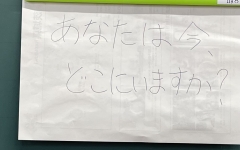 あなたは今、
どこにいますか？